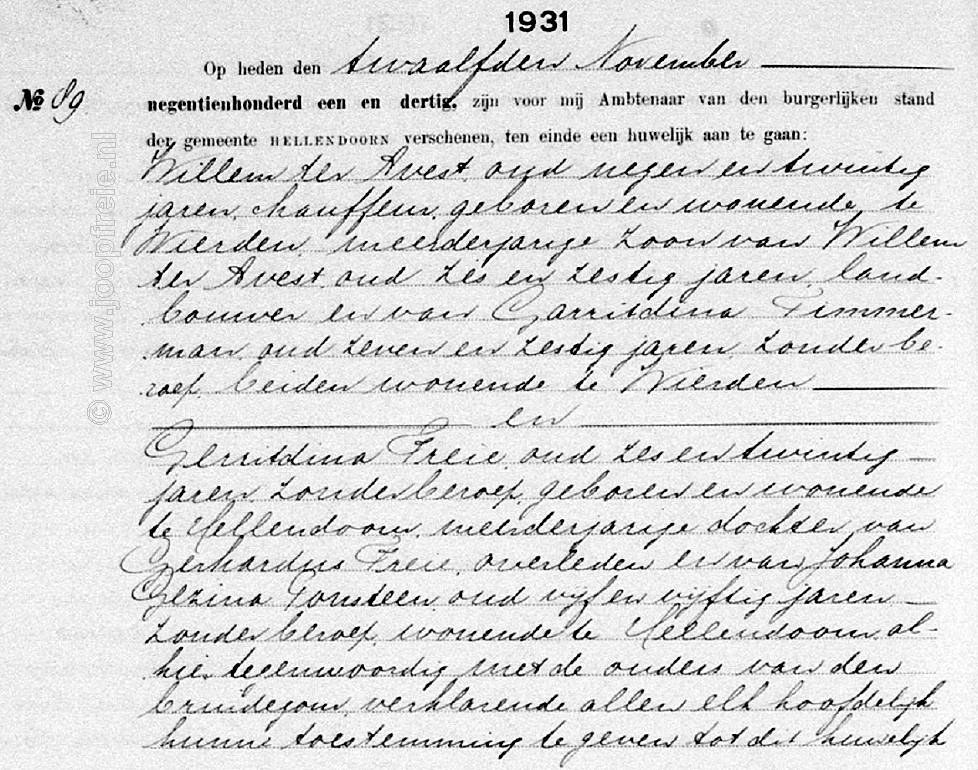 1931
Op heden den twaalfden November
№ 89. negentienhonderd een en dertig, zijn voor mij Ambtenaar van den burgerlijken stand
der gemeente HELLENDOORN verschenen, ten einde een huwelijk aan te gaan:
Willem ter Avest, oud negen en twintig
jaren, chauffeur, geboren en wonende te
Wierden, meerderjarige zoon van Willem
ter Avest, oud zes en zestig jaren, land-
bouwer en van Garritdina Timmer-
man, oud zeven en zestig jaren, zonder be-
roep, beiden wonende te Wierden
en
Gerritdina Freie oud zes en twintig
jaren, zonder beroep, geboren en wonende
te Hellendoorn, meerderjarige dochter van
Gerhardus Freie, overleden en van Johanna
Gezina Ponsteen oud vijf en vijftig jaren
zonder beroep, wonende te Hellendoorn, al-
hier tegenwoordig met de ouders van den
bruidegom, verklarende allen elk hoofdelijk
hunne toestemming te geven tot dit huwelijk
© www.joopfreie.nl